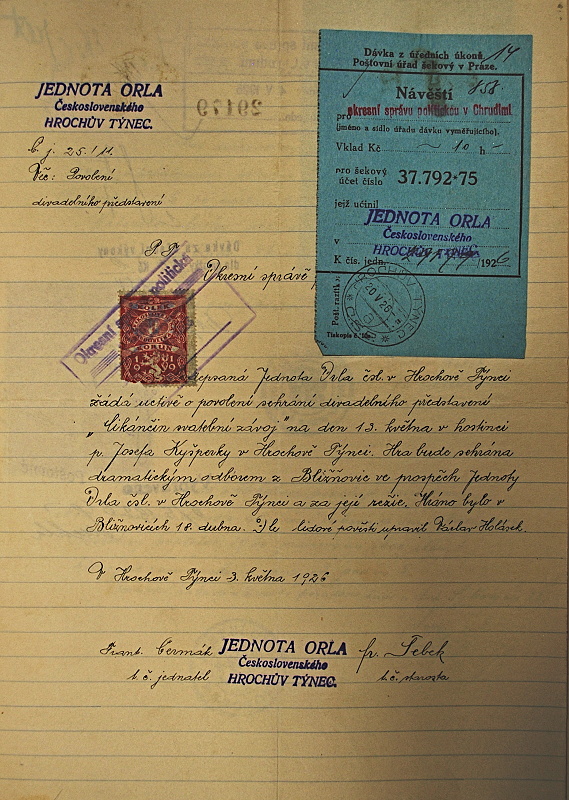 JEDNOTA ORLA
Československého
HROCHŮV TÝNEC.
Č. j. 25./11.
Věc: Povolení
divadelního představení
Dávka z úředních úkonů
Poštovní úřad šekový v Praze.
14
Návěští
858.
pro okresní správu politickou v Chrudimi
(jméno a sídlo úřadu dávku vyměřujícího).
Vklad Kč 10 h
pro šekový
účet číslo 37.792·75
jejž učinil
JEDNOTA ORLA
Československého
v HROCHŮV TÝNEC.
K čís. jedn. 1926
Pošt. razítko:
HROCHŮV TÝNEC
20 V 26
Tiskopis č.
29179
P. T.
Okresní správě
Okresní politická
KORUN
1919
Jednota Orla čsl. v Hrochově Týnci
žádá uctivě o povolení sehrání divadelního představení
„Cikánčin svatební závoj" na den 13. května v hostinci
p. Josefa Kyšperky v Hrochově Týnci. Hra bude sehrána
dramatickým odborem z Bližňovic ve prospěch Jednoty
Orla čsl. v Hrochově Týnci a za její režie. Hráno bylo v
Bližňovicích 18. dubna. Dle lidové pověsti upravil Václav Holásek.
V Hrochově Týnci 3. května 1926
Frant. Čermák
t. č. jednatel
JEDNOTA ORLA
Československého
HROCHŮV TÝNEC.
fr. Tebek
t. č. starosta